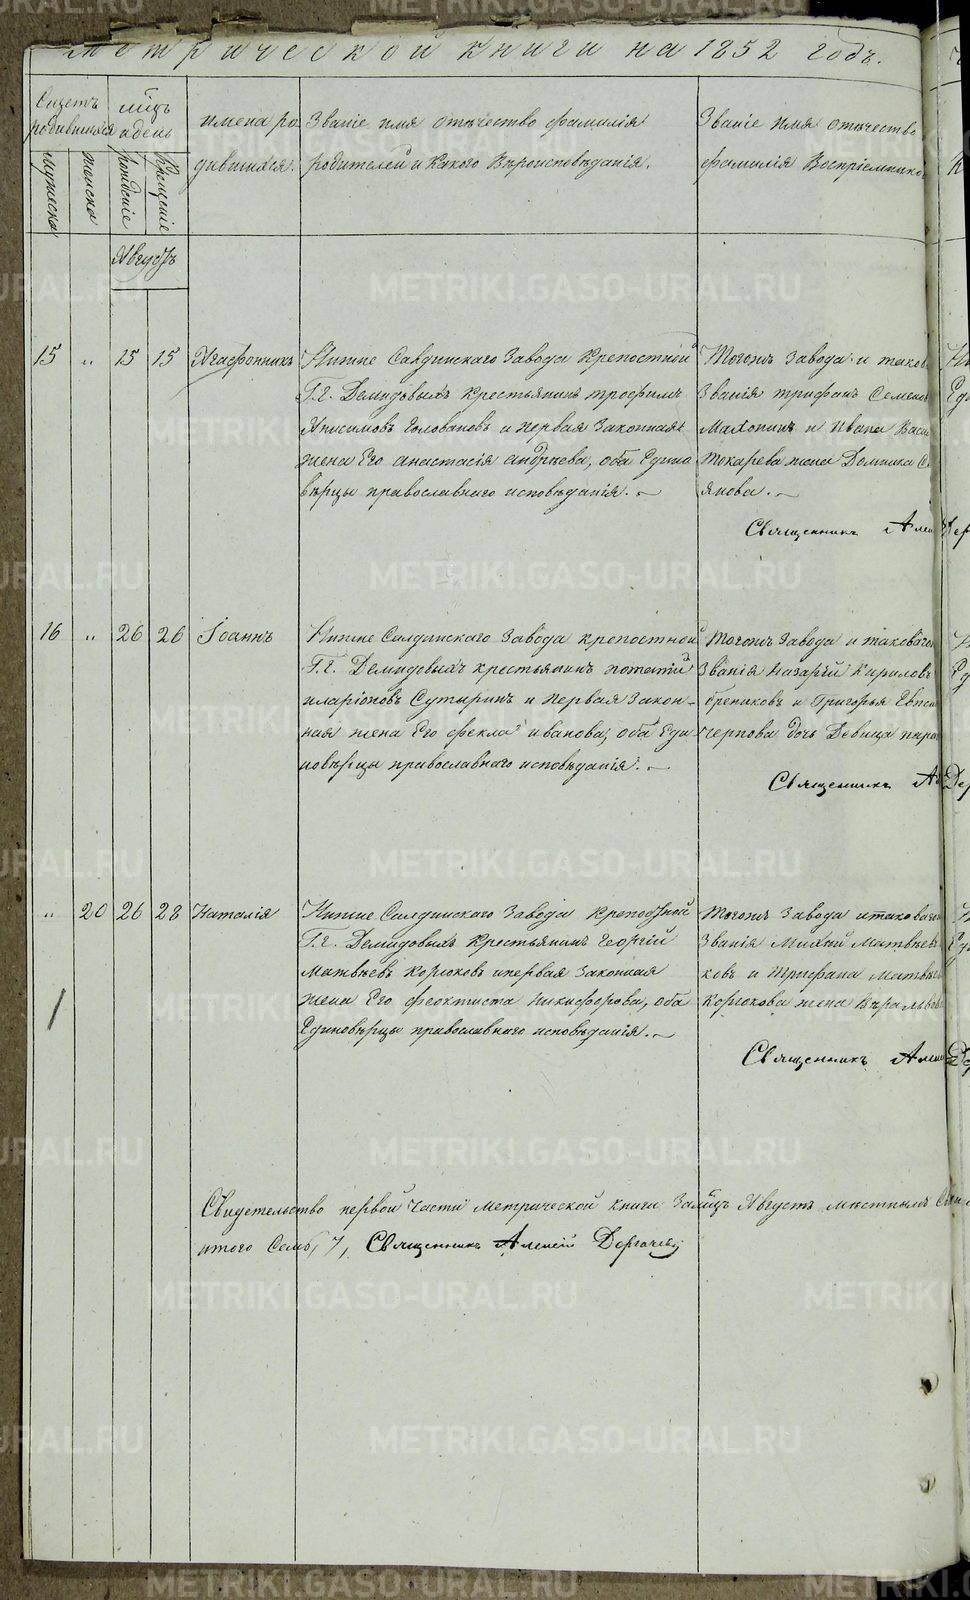 Метрической книги на 1852 годъ.
Счетъ родившихся
мѣсяцъ и день
имена ро
дившихся.
Званіе имя отчество фамилія
родителей и Какого Вѣроисповѣданія.
Званіе имя отчество
фамилія Воспріемников
мужеска
женска
рожденіе
Крещеніе
Августъ
15 „ 15 15 Агафоникъ
Нижне Салдинскаго Завода Крепостной
Г.г. Демидовыхъ Крестьянинъ трофимъ
Анисимовъ Головановъ и первая Законная
жена Его анастасія андрѣева, оба Едино
вѣрцы православнаго исповѣданія.
Тогожъ Завода и таков
Званія трифонъ Семенов
Махонинъ и Ивана Васи
Токарева жена Домника С
янова.
Священникъ Алек
16 „ 26 26 Іоаннъ
Нижне Салдинскаго Завода крепостной
Г.г. Демидовыхъ крестьянинъ потапій
иларіоновъ Сутыринъ и первая Закон-
ная жена Его фекла иванова, оба Еди
новѣрцы православнаго исповѣданія.
Тогожъ Завода и таковаго
Званія Назарій Кириловъ
брениковъ и Григорья Евпси
черпова дочь Девица
Священникъ А
„ 20 26 28 Наталія
Нижне Салдинскаго Завода Крепостной
Г.г. Демидовыхъ Крестьянинъ Георгій
Матвѣевъ Корюковъ и первая Законная
жена Его феоктиста никифорова, оба
Единовѣрцы православнаго исповѣданія.
Тогожъ Завода и таковаго
Званія Михей Матвѣевъ
ковъ и Трифана матвѣев
Корюкова жена Вѣра львова
Священникъ Алек
Свидетельство первой части метрической книги За мѣсяцъ Августъ мѣстнымъ
итого Семб, 7, Священникъ Алексій Дергачевъ
METRIKI.GASO-URAL.RU